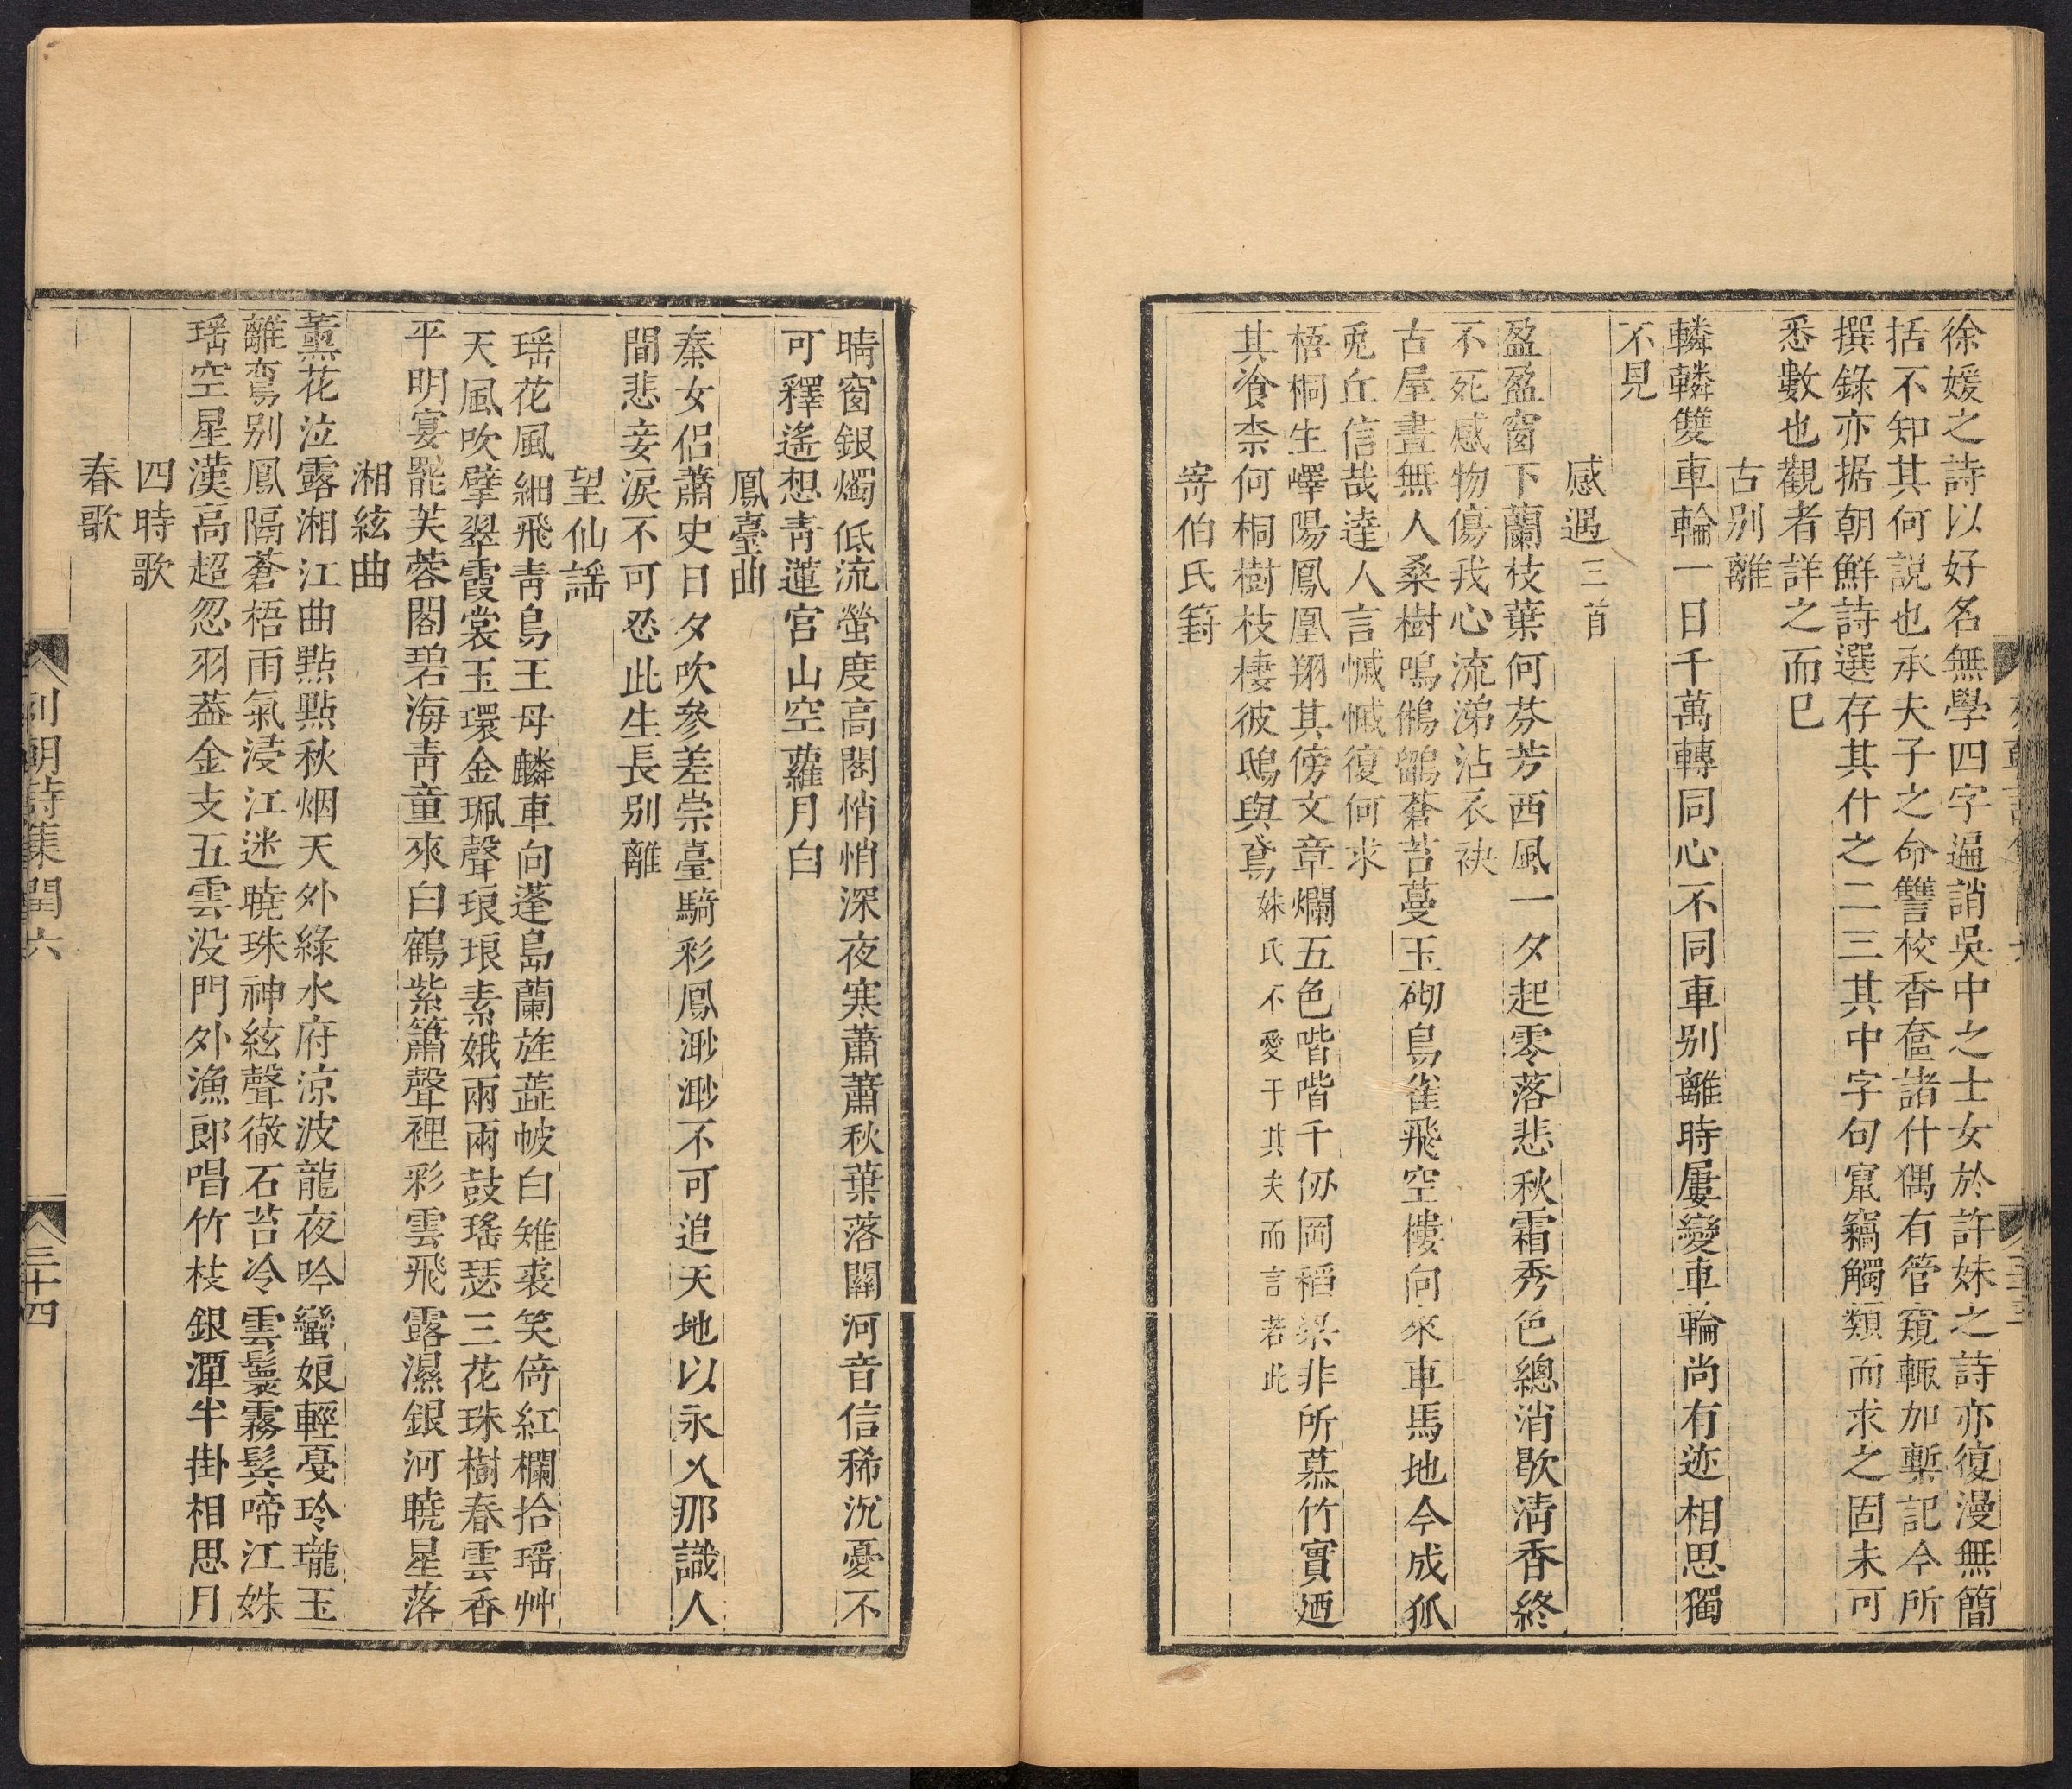 徐媛之詩以好名無學四字遍誚吳中之士女於許妹之詩亦復漫無簡
括不知其何説也承夫子之命讐校香奩諸什偶有管窺輒加槧記今所
撰錄亦据朝鮮詩選存其什之二三其中字句竄竊觸類而求之固未可
悉數也觀者詳之而已
古别離
轔轔雙車輪一日千萬轉同心不同車别離時屢變車輪尚有迹相思獨
不見
感遇三首
盈盈窗下蘭枝葉何芬芳西風一夕起零落悲秋霜秀色總消歇清香終
不死感物傷我心流涕沾衣袂
古屋晝無人桑樹鳴鵂鶹蒼苔蔓玉砌鳥雀飛空樓向來車馬地今成狐
兎丘信哉達人言慽慽復何求
梧桐生嶧陽鳳凰翔其傍文章爛五色喈喈千仞岡稻粱非所慕竹實廼
其飡柰何桐樹枝棲彼鴟與鳶妹氏不愛于其夫而言若此
寄伯氏篈
晴窗銀燭低流螢度高閣悄悄深夜寒蕭蕭秋葉落關河音信稀沉憂不
可釋遙想靑蓮宫山空蘿月白
鳳臺曲
秦女侣蕭史日夕吹參差崇臺騎彩鳳渺渺不可追天地以永久那識人
間悲妾淚不可忍此生長别離
望仙謡
瑶花風細飛靑鳥王母麟車向蓬島蘭旌蘂帔白雉裘笑倚紅欄拾瑶艸
天風吹擘翠霞裳玉環金珮聲琅琅素娥兩兩鼓瑤瑟三花珠樹春雲香
平明宴罷芙蓉閣碧海靑童來白鶴紫簫聲裡彩雲飛露濕銀河曉星落
湘絃曲
薰花泣露湘江曲點點秋烟天外綠水府凉波龍夜吟蠻娘輕戞玲瓏玉
離鸞别鳳隔蒼梧雨氣浸江迷曉珠神絃聲徹石苔冷雲鬟霧鬢啼江姝
瑶空星漢高超忽羽葢金支五雲没門外漁郎唱竹枝銀潭半掛相思月
四時歌
春歌
列朝詩集閏六
三十四